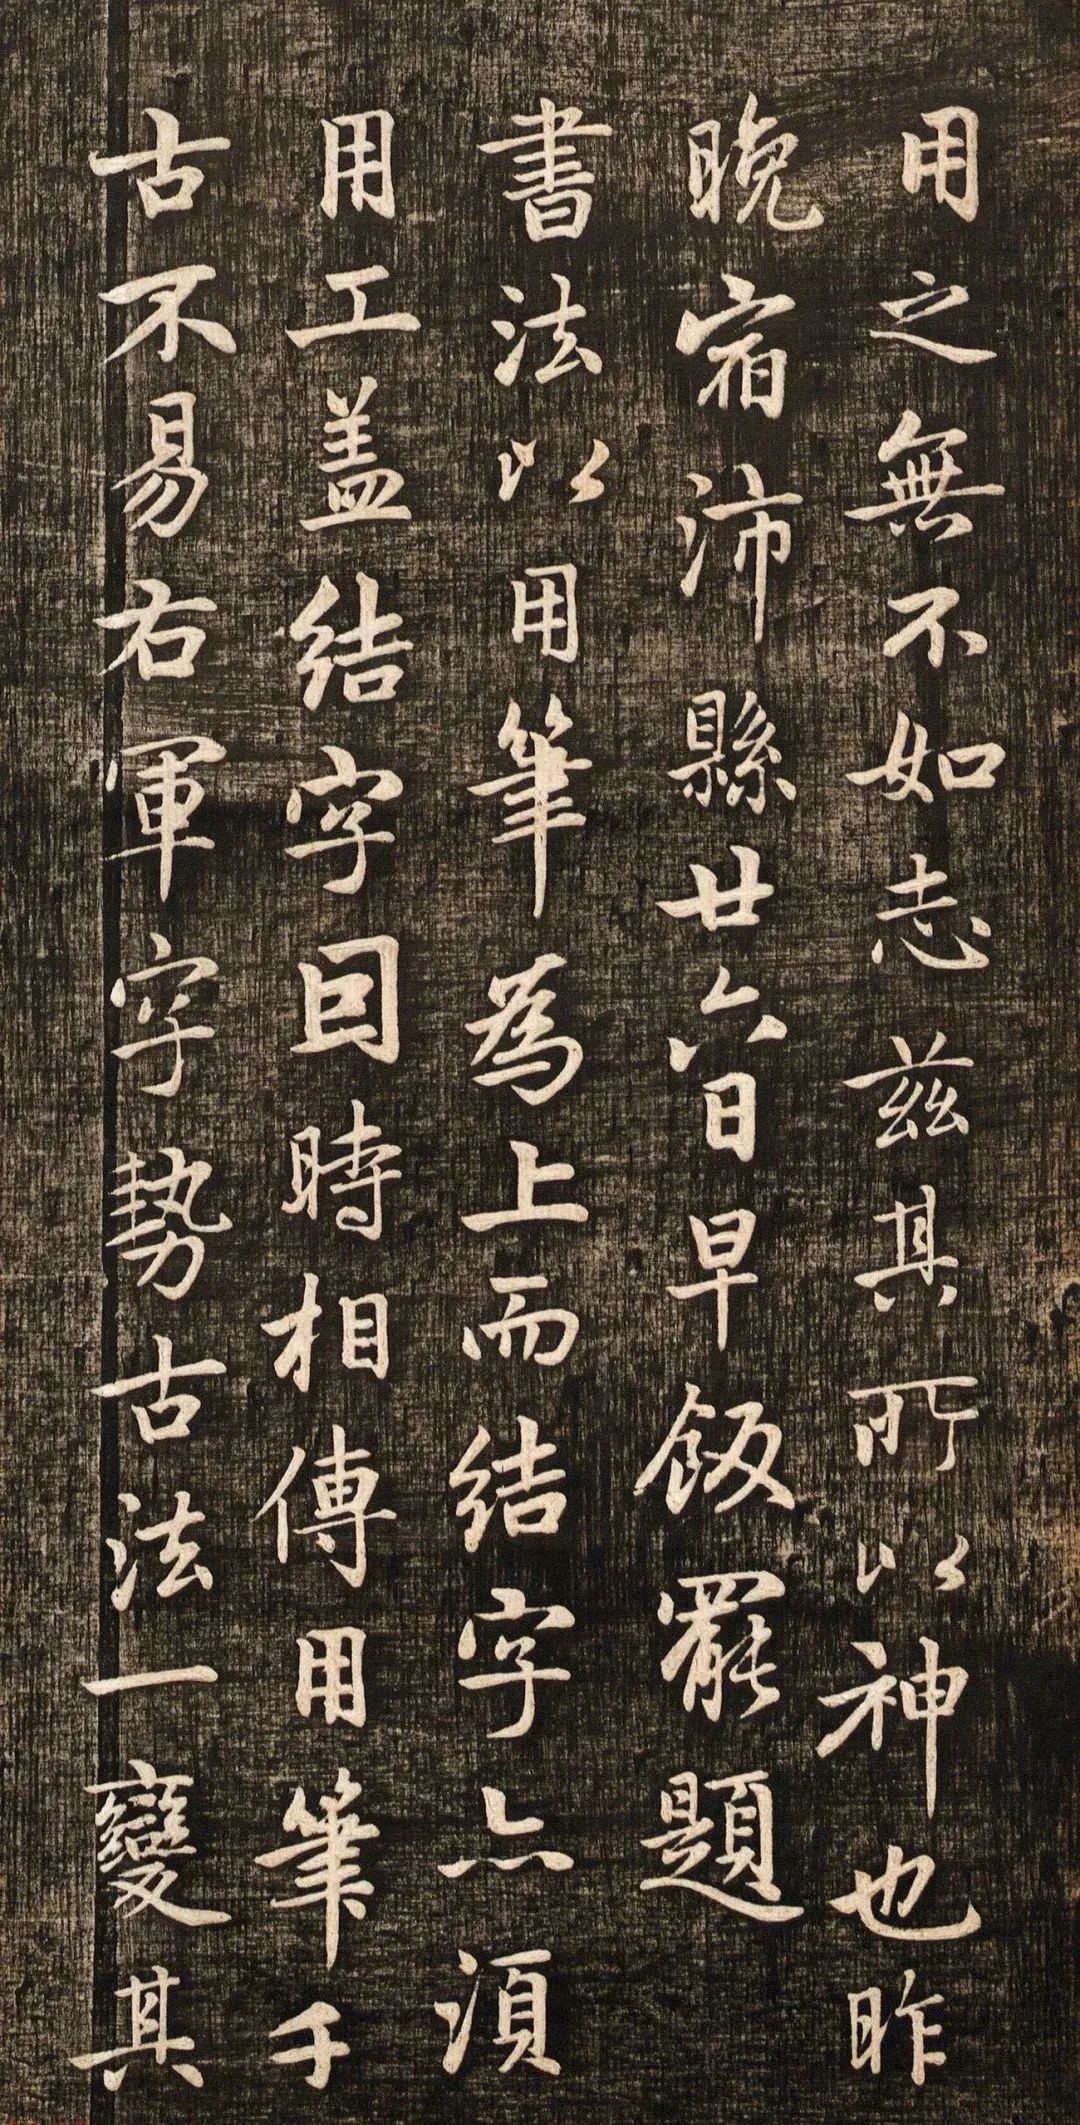 用之無不如志兹其所以神也昨
晚宿沛縣廿六日早飯罷題
書法以用筆為上而結字亦須
用工盖結字因時相傳用筆千
古不易右軍字勢古法一變其